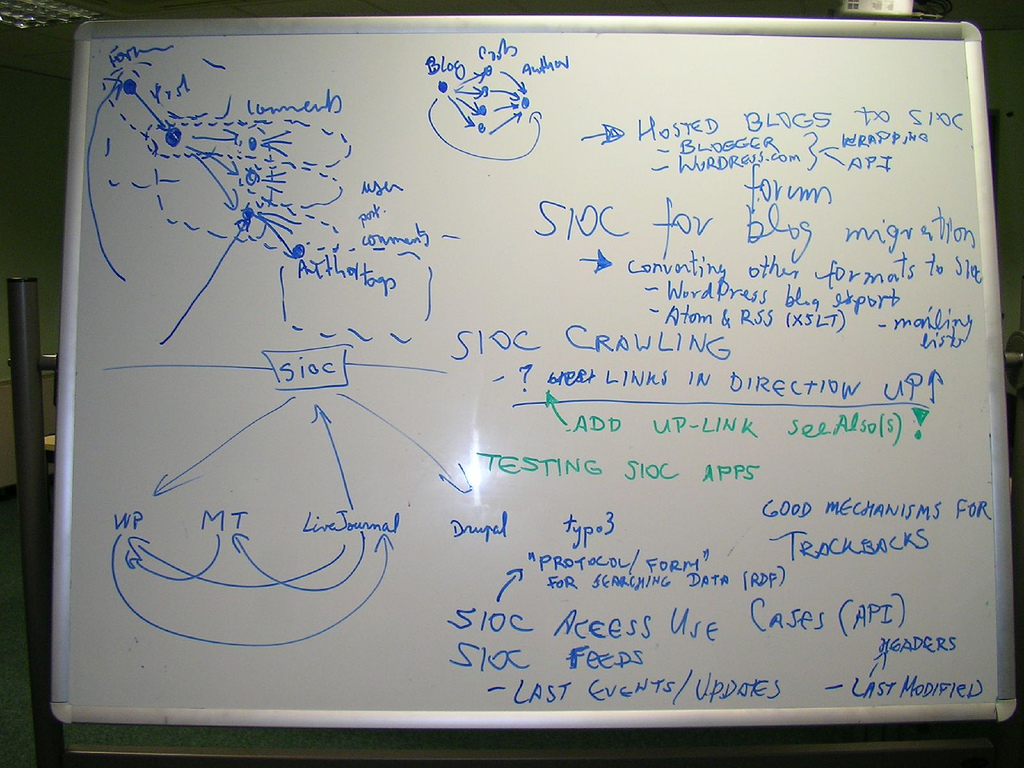 Forum
Post
comments
user
post
comments
Author
tags
Blog
Posts
Author
HOSTED BLOGS TO SIOC
- BLOGGER
- WORDPRESS.COM
WRAPPING
API
forums
SIOC for blog migration
converting other formats to SIOC
- WordPress blog export
- Atom & RSS (XSLT)
- mailing
lists
SIOC CRAWLING
- ? LINKS IN DIRECTION UP↑
ADD UP-LINK seeAlso(s)!
TESTING SIOC APPS
SIOC
WP
MT
LiveJournal
Drupal
typo3
GOOD MECHANISMS FOR
TRACKBACKS
"PROTOCOL/FORM"
FOR SEARCHING DATA (RDF)
SIOC ACCESS USE CASES (API)
SIOC FEEDS
- LAST EVENTS/UPDATES
- LAST MODIFIED
HEADERS